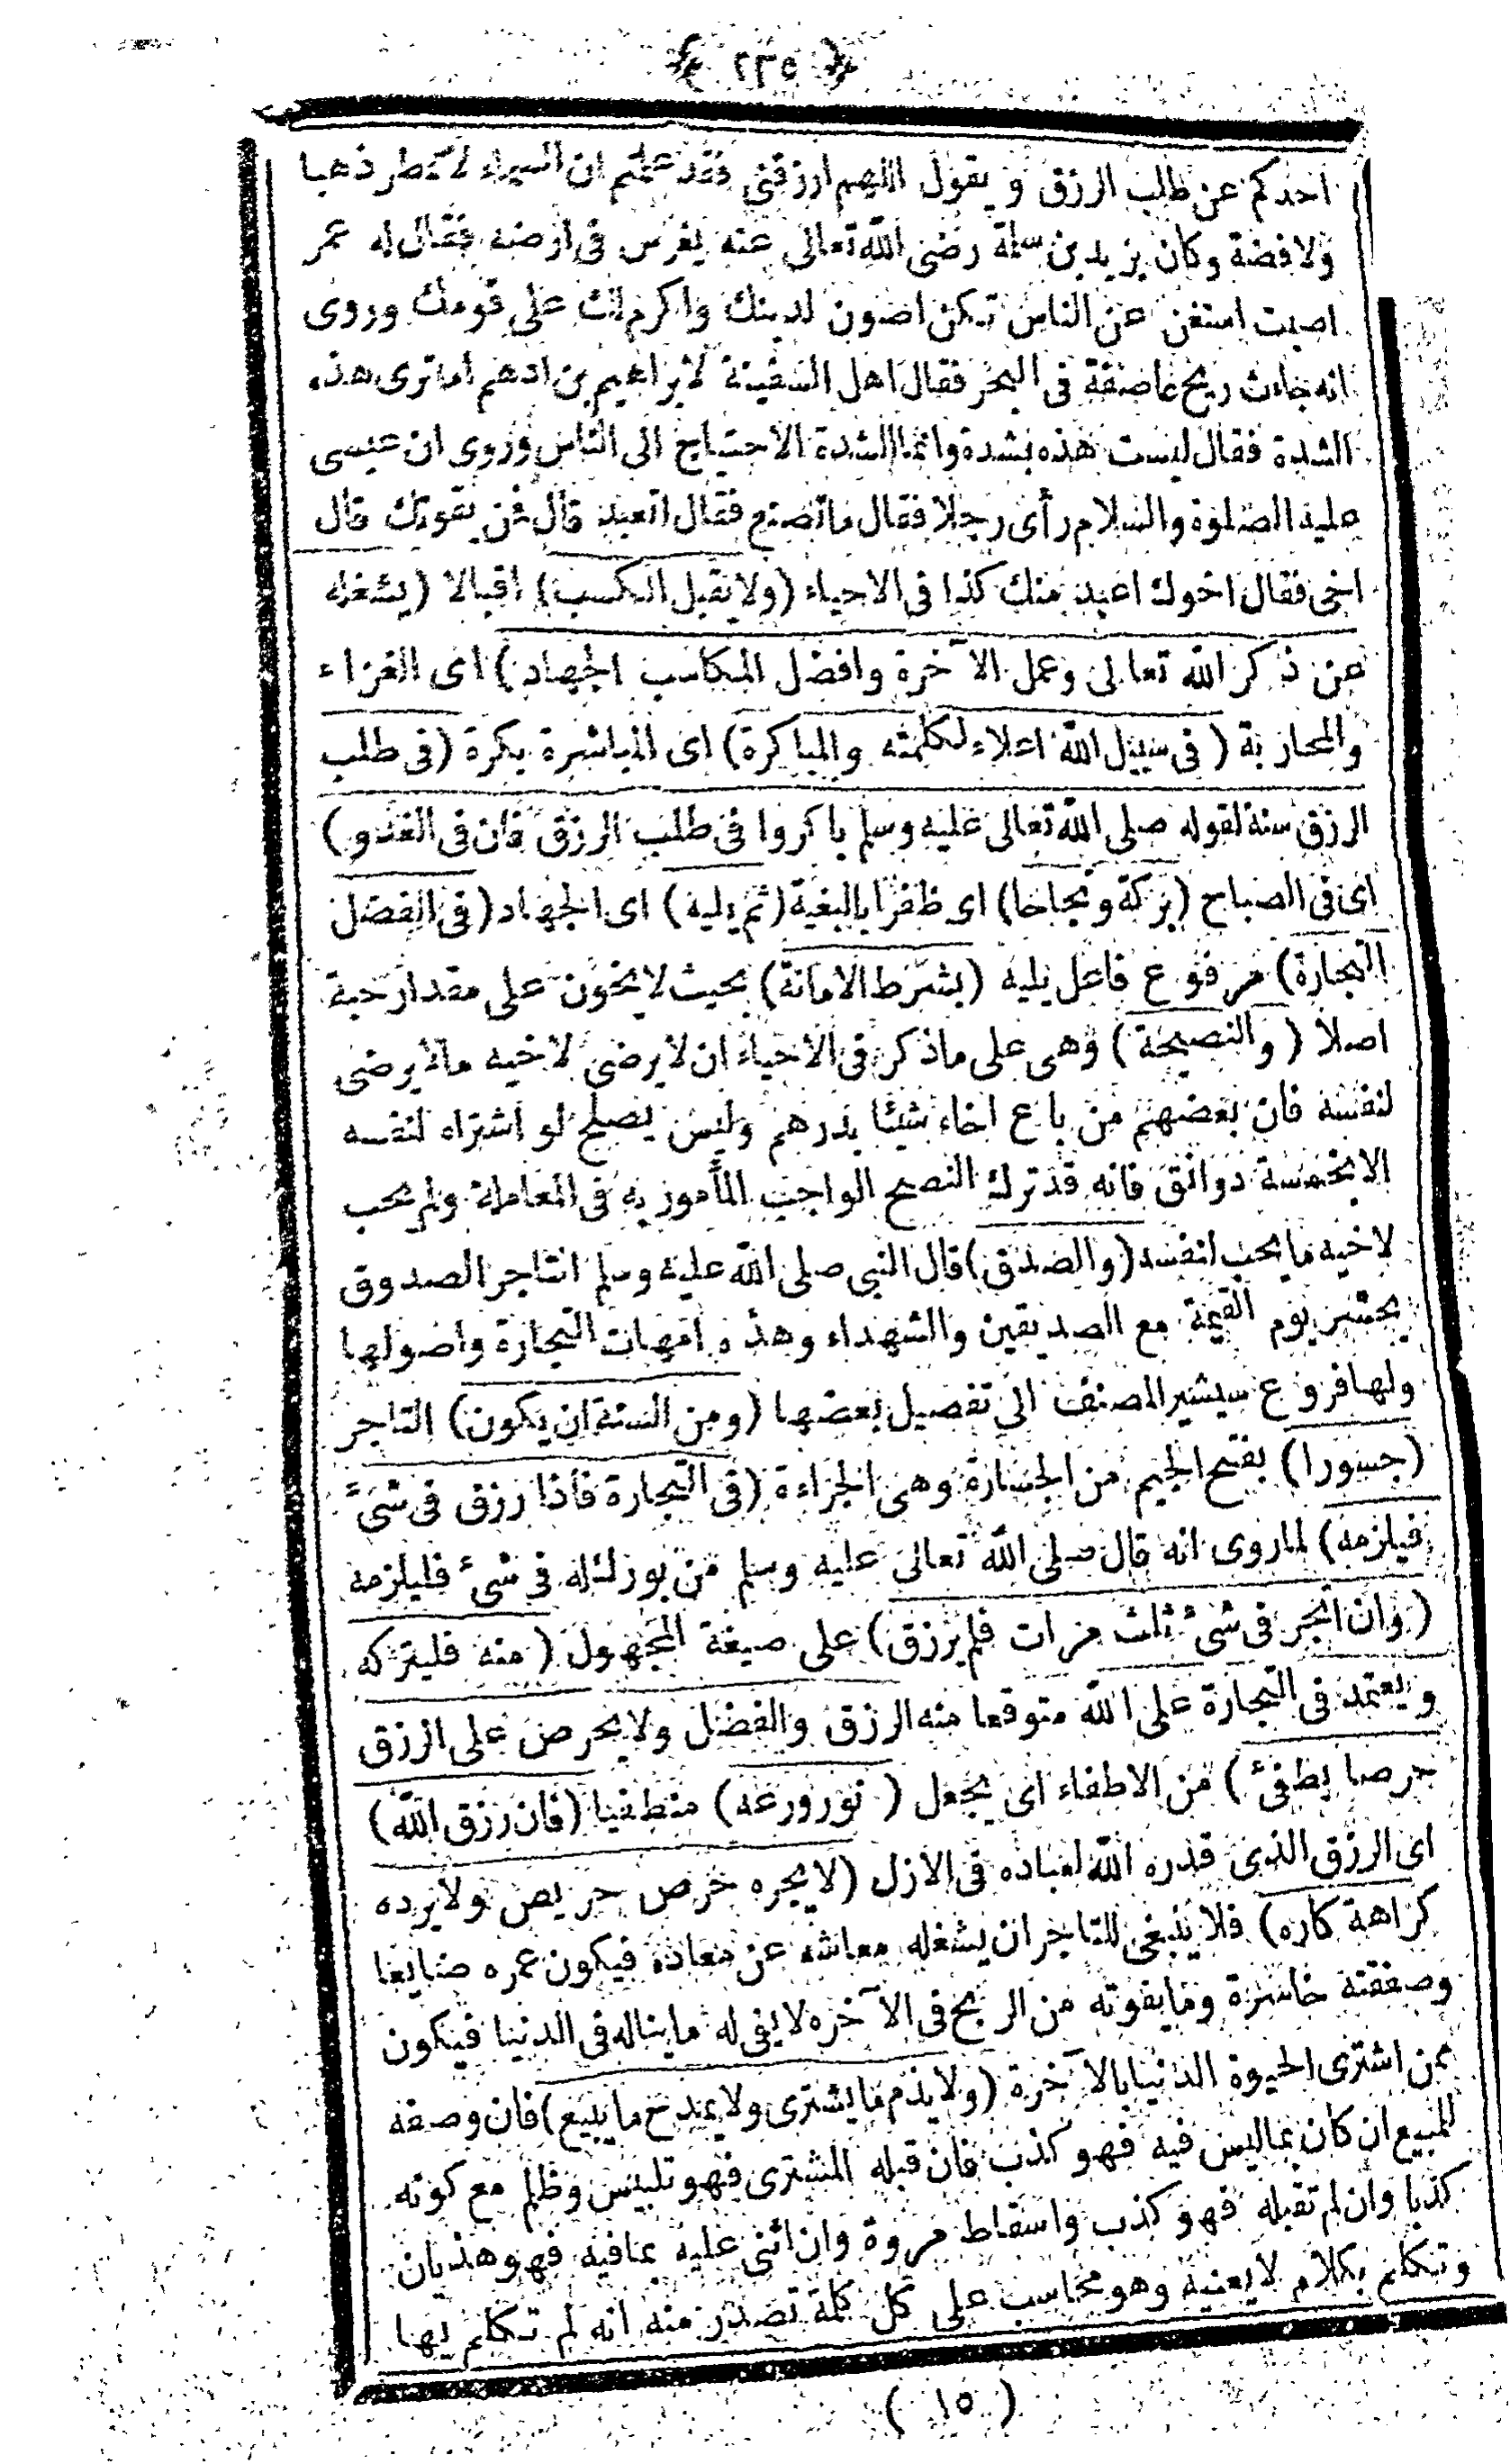 ﴿ ٢٢٥ ﴾
احدكم عن طلب الرزق و يقول اللهم ارزقنى فقد علمتم ان السماء لا تمطر ذهبا
ولا فضة وكان يزيد بن سلمة رضى الله تعالى عنه يغرس فى ارضه فقال له عمر
اصبت استغن عن الناس تكن اصون لدينك واكرم لك على قومك وروى
انه جاءت ريح عاصفة فى البحر فقال اهل السفينة لابراهيم بن ادهم اما ترى هذه
الشدة فقال ليست هذه بشدة وانما الشدة الاحتياج الى الناس وروى ان عيسى
عليه الصلوة والسلام رأى رجلا فقال ما تصنع فقال اتعبد قال فمن يقوتك قال
اخى فقال اخوك اعبد منك كذا فى الاحياء (ولا يقبل الكسب) اقبالا (يشغله
عن ذكر الله تعالى وعمل الآخرة وافضل المكاسب الجهاد) اى الغزاء
والمحاربة (فى سبيل الله اعلاء لكلمته والمباكرة) اى المباشرة بكرة (فى طلب
الرزق سنة لقوله صلى الله تعالى عليه وسلم باكروا فى طلب الرزق فان فى الغدو)
اى فى الصباح (بركة ونجاحا) اى ظفرا بالبغية (ثم يليه) اى الجهاد (فى الفضل
التجارة) مرفوع فاعل يليه (بشرط الامانة) بحيث لا يخون على مقدار حبة
اصلا (والنصيحة) وهى على ما ذكر فى الاحياء ان لا يرضى لاخيه ما لا يرضى
لنفسه فان بعضهم من باع اخاه شيئا بدرهم وليس يصلح لو اشتراه لنفسه
الا بخمسة دوانق فانه قد ترك النصح الواجب المأمور به فى المعاملة ولم يحب
لاخيه ما يحب لنفسه (والصدق) قال النبى صلى الله عليه وسلم التاجر الصدوق
يحشر يوم القيمة مع الصديقين والشهداء وهذه امهات التجارة واصولها
ولها فروع سيشير المصنف الى تفصيل بعضها (ومن السنة ان يكون) التاجر
(جسورا) بفتح الجيم من الجسارة وهى الجراءة (فى التجارة فاذا رزق فى شئ
فيلزمه) لما روى انه قال صلى الله تعالى عليه وسلم من بورك له فى شئ فليلزمه
(وان اتجر فى شئ ثلث مرات فلم يرزق) على صيغة المجهول (منه فليتركه
ويعتمد فى التجارة على الله متوقعا منه الرزق والفضل ولا يحرص على الرزق
حرصا يطفئ) من الاطفاء اى يجعل (نور ورعه) منطفيا (فان رزق الله)
اى الرزق الذى قدره الله لعباده فى الازل (لا يجره حرص حريص ولا يرده
كراهة كاره) فلا ينبغى للتاجر ان يشغله معاشه عن معاده فيكون عمره ضايعا
وصفقته خاسرة وما يفوته من الربح فى الآخره لا يفى له ما يناله فى الدنيا فيكون
ممن اشترى الحيوة الدنيا بالآخرة (ولا يذم ما يشترى ولا يمدح ما يبيع) فان وصفه
للمبيع ان كان بما ليس فيه فهو كذب فان قبله المشترى فهو تلبيس وظلم مع كونه
كذبا وان لم تقبله فهو كذب واسقاط مروة وان اثنى عليه بما فيه فهو هذيان
وتكلم بكلام لا يعنيه وهو محاسب على كل كلمة تصدر منه انه لم تكلم بها
(١٥)